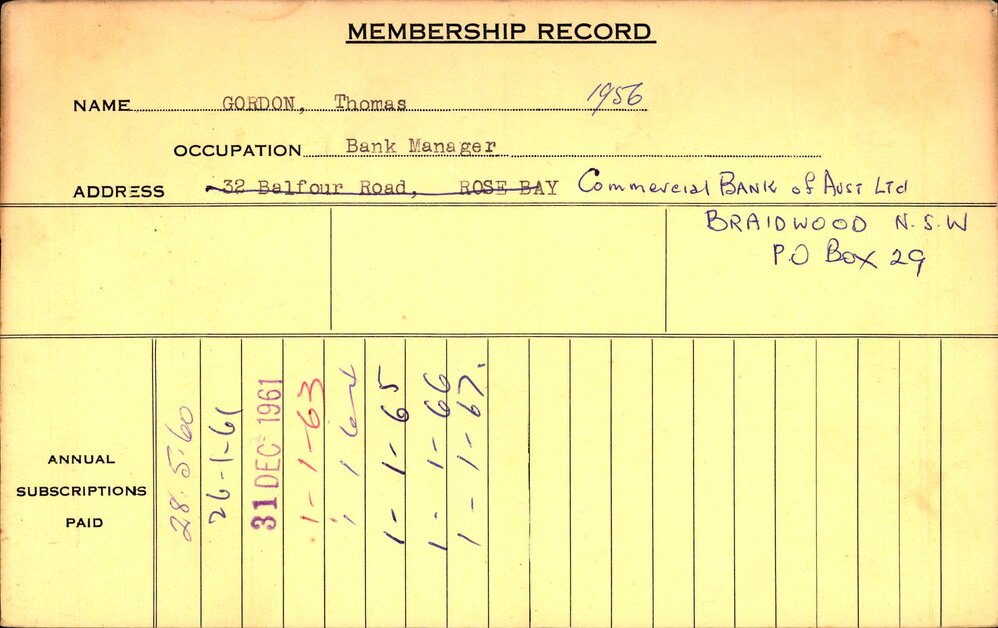 MEMBERSHIP RECORD
NAME GORDON, Thomas 1956
OCCUPATION Bank Manager
ADDRESS 32 Balfour Road, ROSE BAY Commercial BANK of AUST LTD
BRAIDWOOD N.S.W
P.O BOX 29
ANNUAL
SUBSCRIPTIONS
PAID
28.5.60
26-1-61
31 DEC 1961
1-1-63
1 1 64
1-1-65
1-1-66
1-1-67.